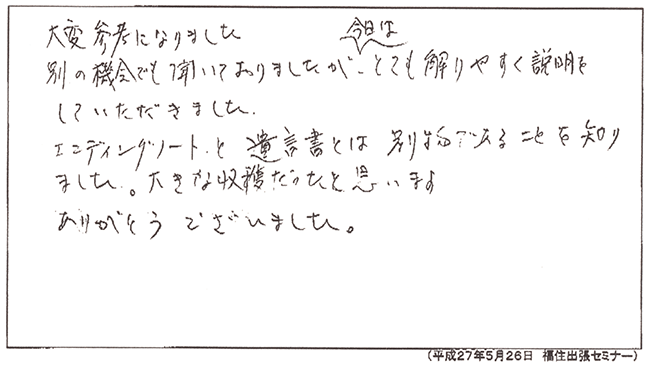 大変参考になりました
今日は
別の機会でも聞いておりましたが、とても解りやすく説明を
していただきました.
エンディングノートと遺言書とは別物であることを知り
ました。大きな収穫だったと思います
ありがとうございました。
(平成27年5月26日 福住出張セミナー)